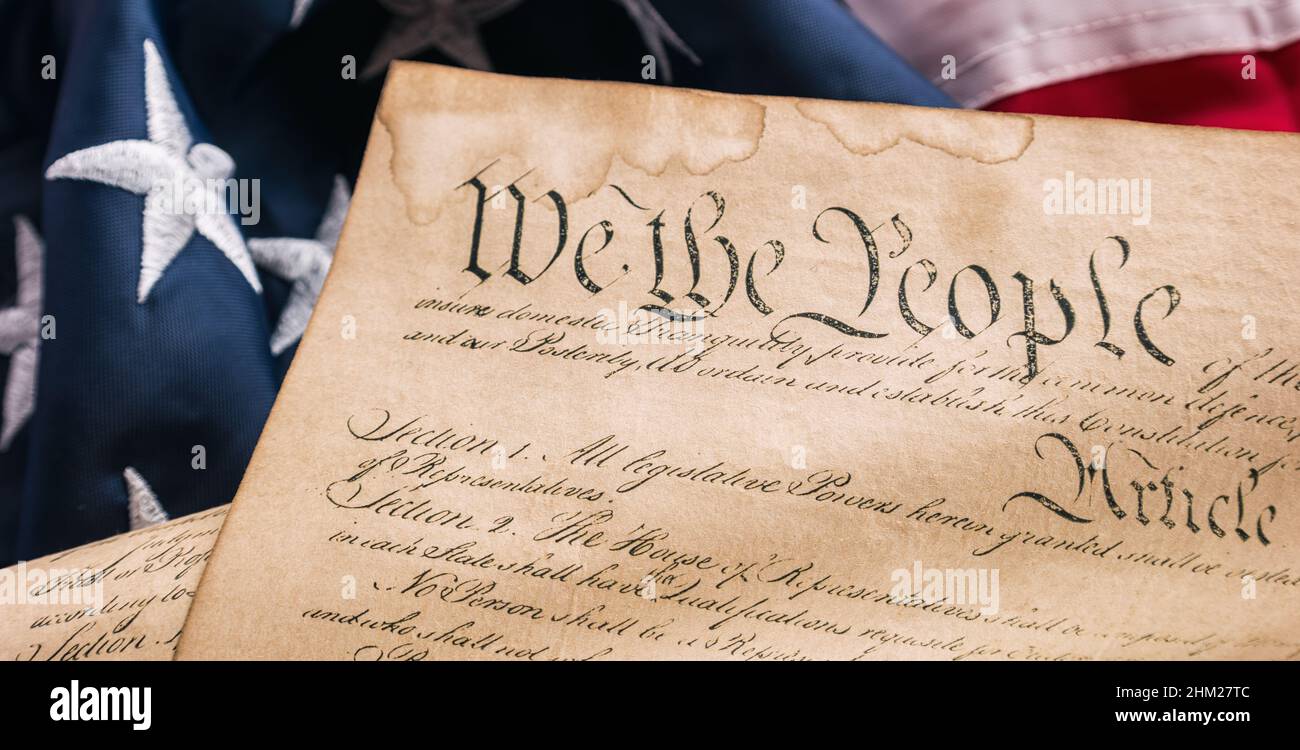 We the People of the
insure domestic Tranquility, provide for the common defence,
and our Posterity, do ordain and establish this Constitution for
Article
Section 1. All legislative Powers herein granted shall be vested
of Representatives.
Section 2. The House of Representatives shall be composed
in each State shall have the Qualifications requisite for
No Person shall be a Repres
and who shall not
according to
Section
alamy
Image ID: 2HM27TC
www.alamy.com